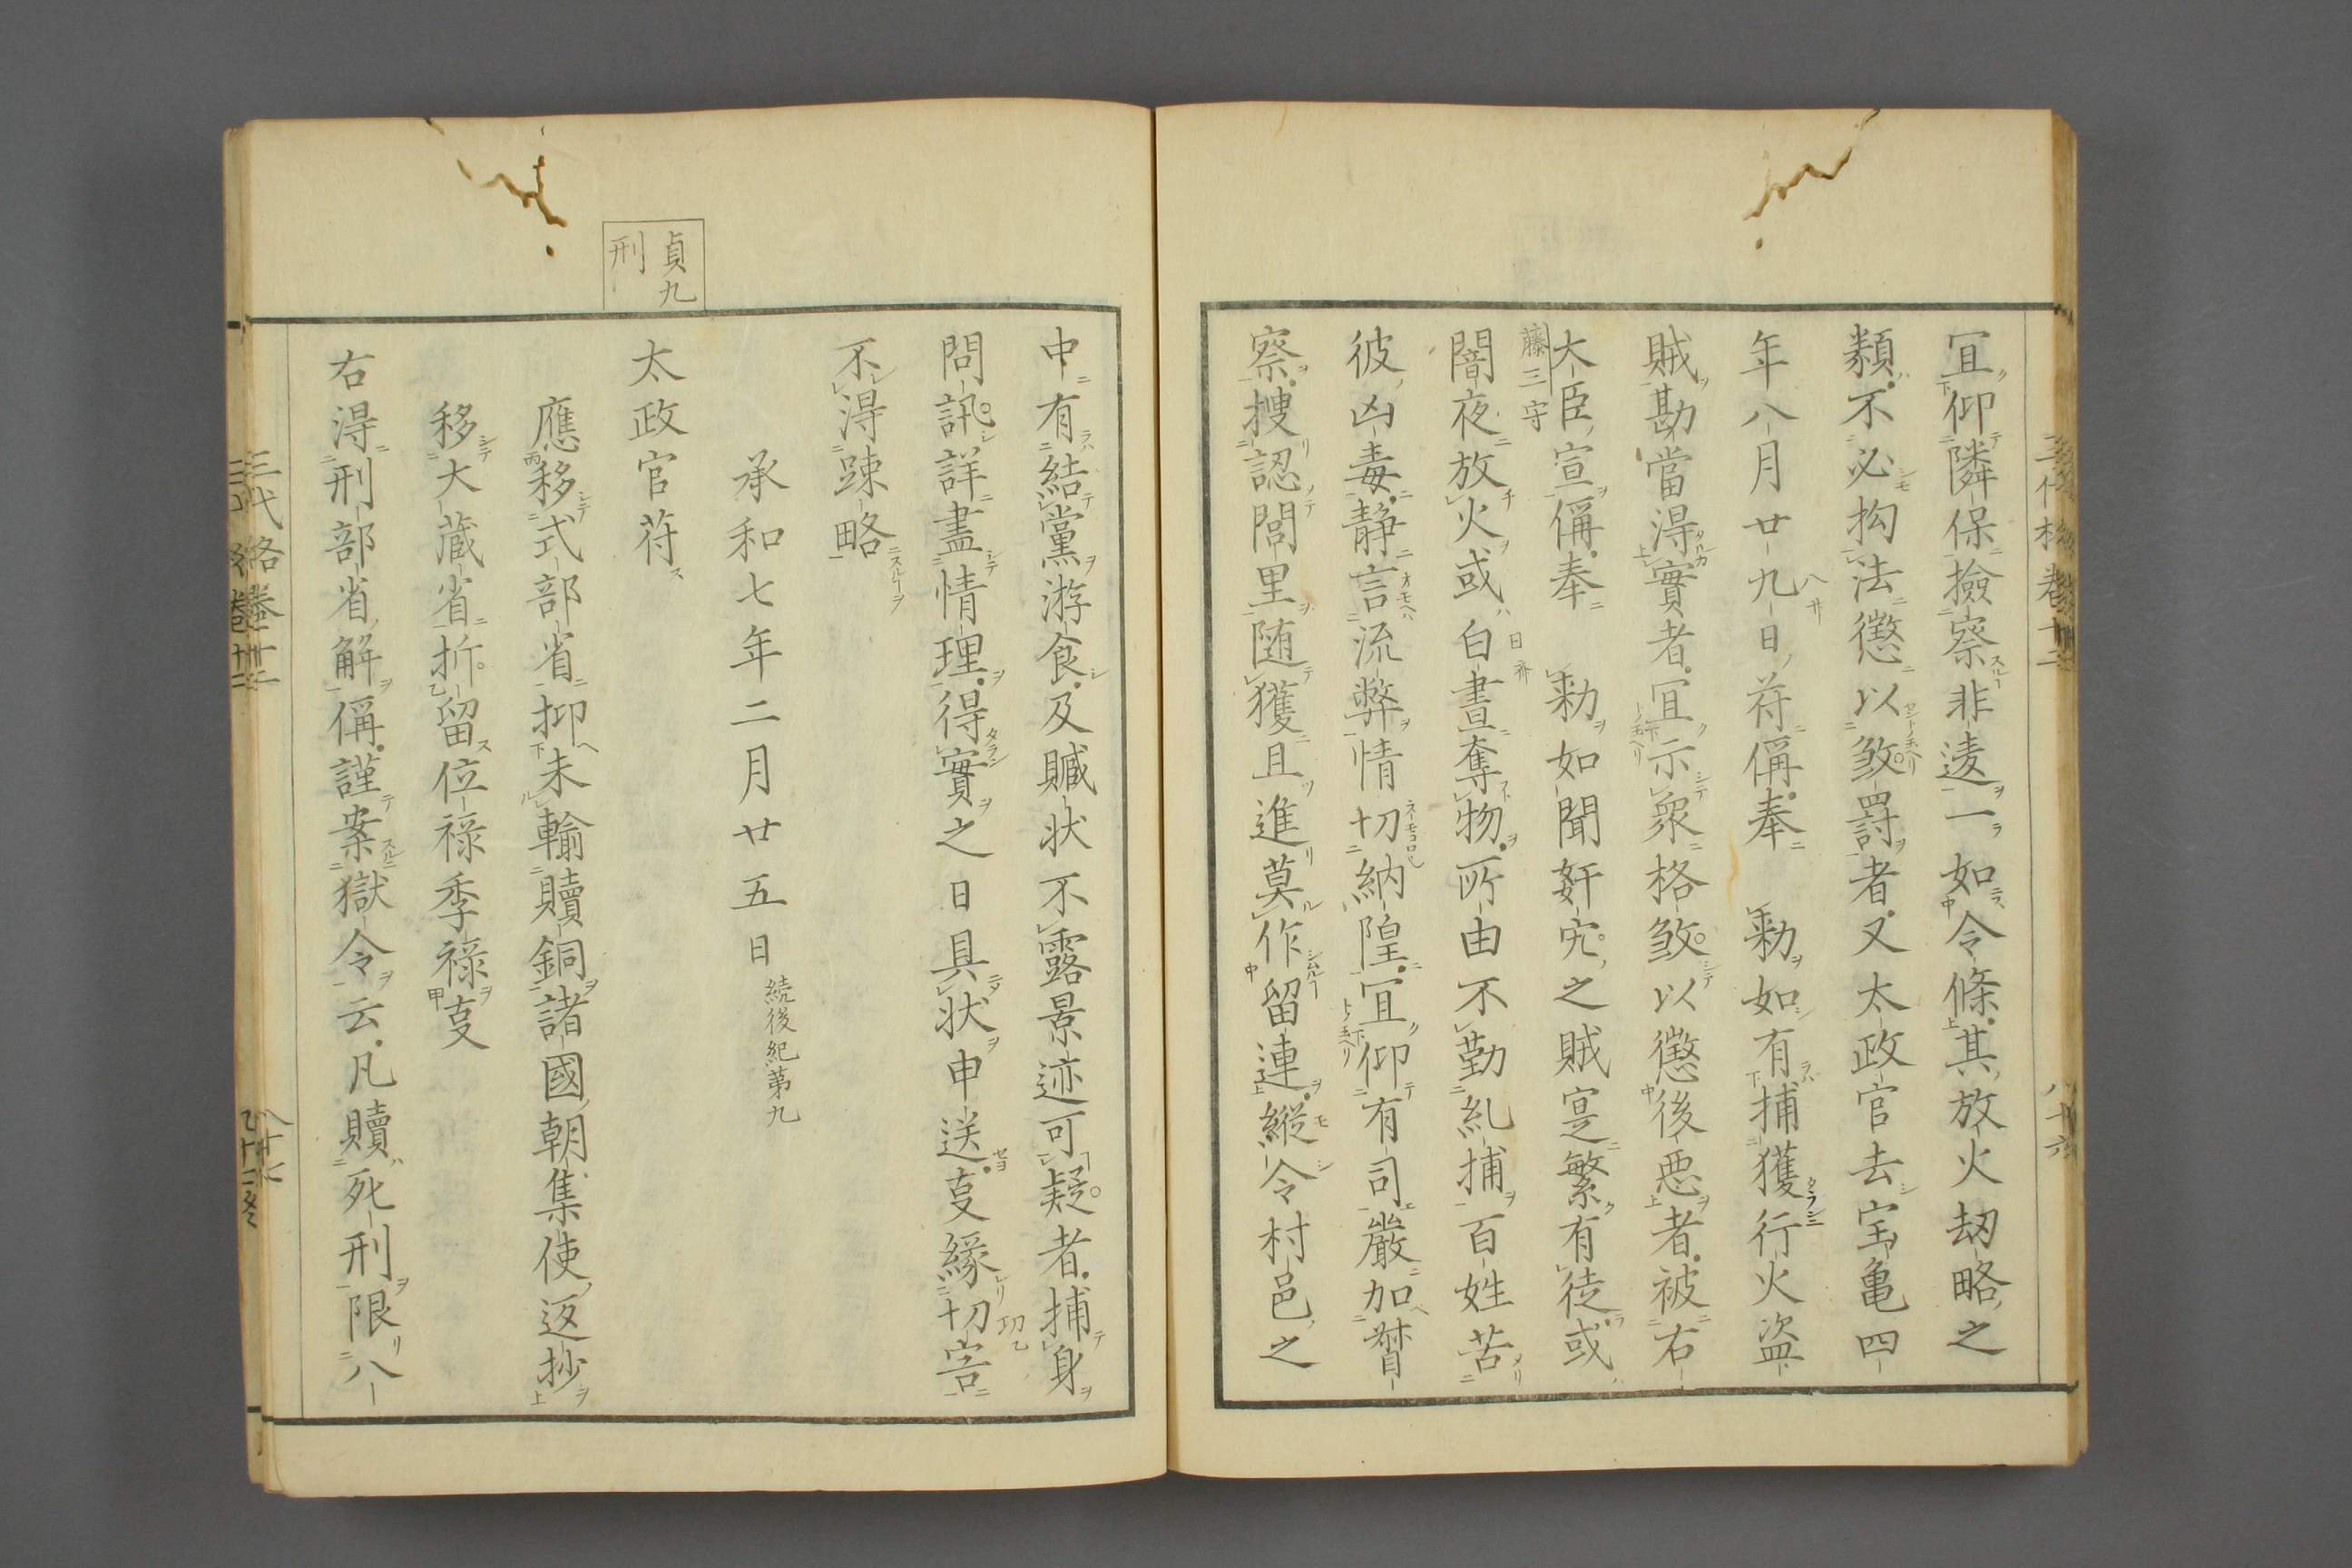 宜仰隣保撿察非違一如令條其放火刼略之
類不必拘法懲以煞罸者又太政官去宝亀四
年八月廿九日苻偁奉　勅如有捕獲行火盗
賊勘當淂實者宜示衆格煞以懲後悪者被右
大臣宣偁奉　勅如聞奸宄之賊寔繁有徒或
藤三守
闇夜放火或白晝奪物所由不勤糺捕百姓苦
彼凶毒静言流弊情切納隍宜仰有司嚴加督
察捜認閭里随獲且進莫作留連縦令村邑之
中有結黨游食及贓状不露景迹可疑者捕身
問訊詳盡情理得實之日具状申送事縁切害
不淂踈略
承和七年二月廿五日 続後紀第九
貞九
刑
太政官苻
應移式部省抑未輸贖銅諸國朝集使返抄
移大蔵省折留位禄季禄事
右淂刑部省解偁謹案獄令云凡贖死刑限八